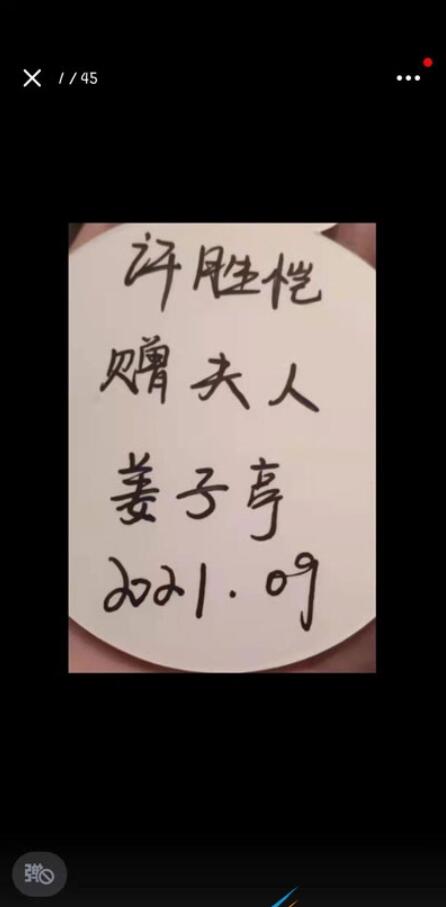 //45
许胜恺
赠夫人
姜子亭
2021.09
弹